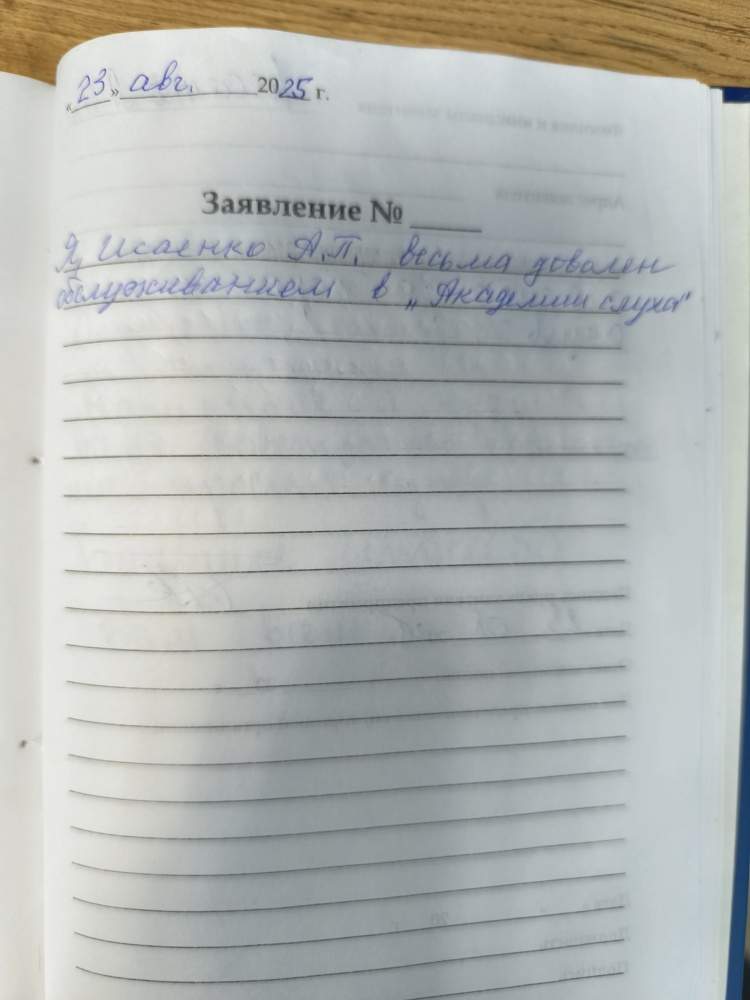 «23» авг. 2025 г.
Заявление № _____
Я, Исаенко А.П. весьма доволен
обслуживанием в „Академии слуха"